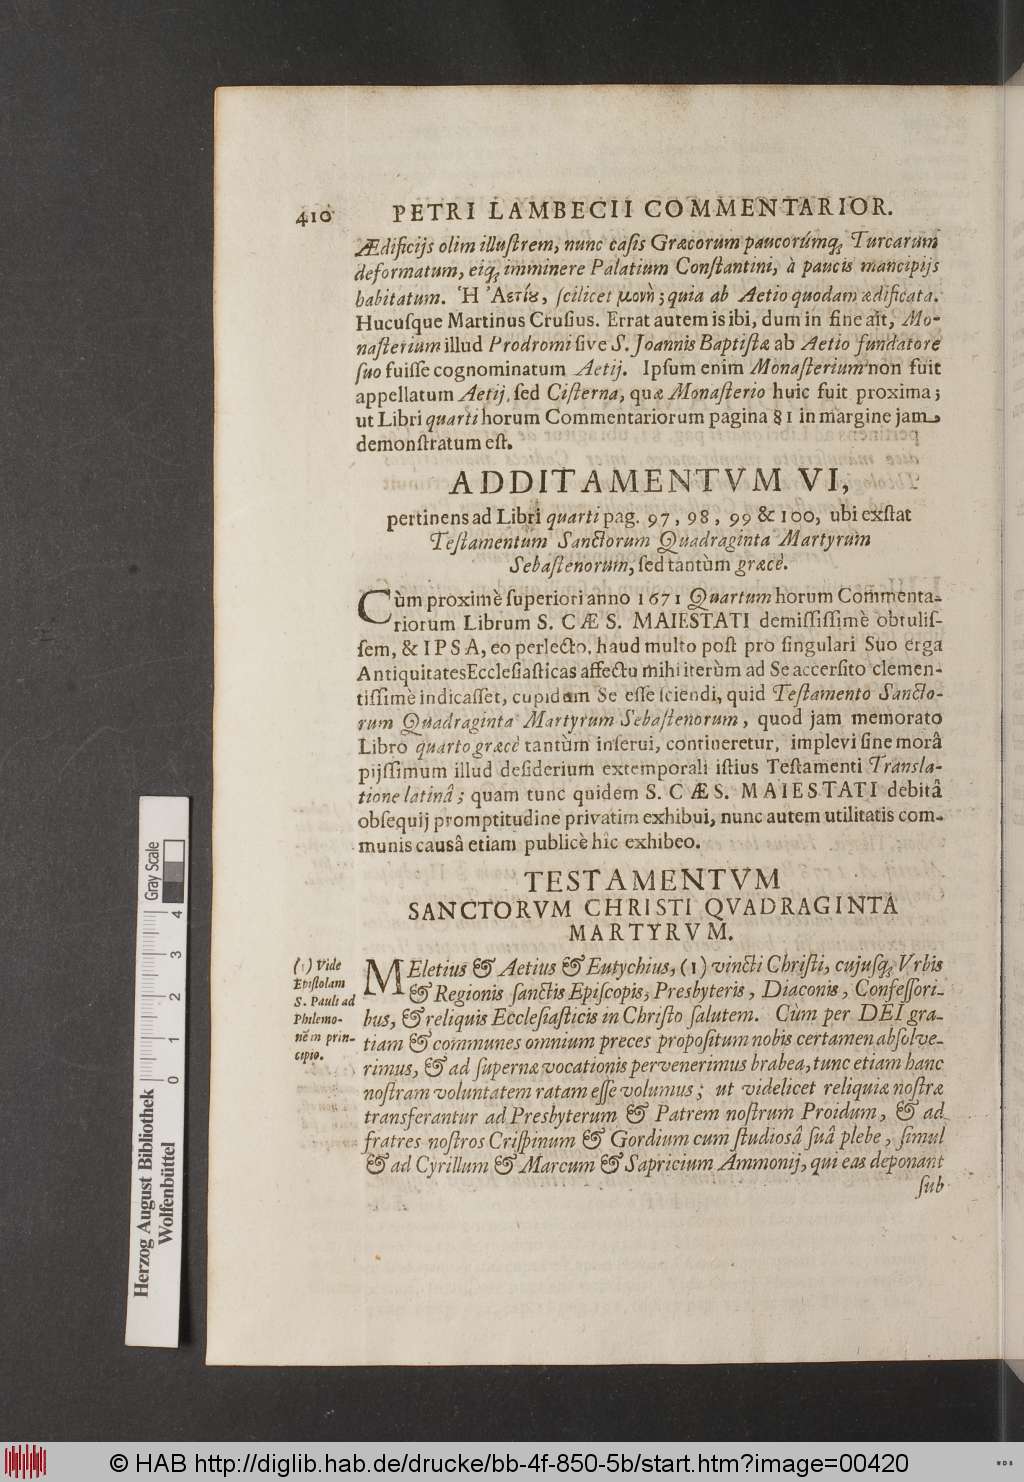 410 PETRI LAMBECII COMMENTARIOR.
Ædificijs olim illuſtrem, nunc caſis Græcorum paucorúmq; Turcarum
deformatum, eiq; imminere Palatium Conſtantini, à paucis mancipijs
habitatum. Ἡ Ἀετίȣ, ſcilicet μονὴ; quia ab Aetio quodam ædificata.
Hucuſque Martinus Cruſius. Errat autem is ibi, dum in fine ait, Mo-
naſterium illud Prodromi ſive S. Joannis Baptiſtæ ab Aetio fundatore
ſuo fuiſſe cognominatum Aetij. Ipſum enim Monaſterium non fuit
appellatum Aetij, ſed Ciſterna, quæ Monaſterio huic fuit proxima;
ut Libri quarti horum Commentariorum pagina 81 in margine jam
demonſtratum eſt.
ADDITAMENTVM VI,
pertinens ad Libri quarti pag. 97, 98, 99 & 100, ubi exſtat
Teſtamentum Sanctorum Quadraginta Martyrum
Sebaſtenorum, ſed tantùm græcè.
Cùm proximè ſuperiori anno 1671 Quartum horum Commenta-
riorum Librum S. CÆS. MAIESTATI demiſſiſſimè obtuliſ-
ſem, & IPSA, eo perlecto, haud multo poſt pro ſingulari Suo erga
Antiquitates Eccleſiaſticas affectu mihi iterùm ad Se accerſito clemen-
tiſſimè indicaſſet, cupidam Se eſſe ſciendi, quid Teſtamento Sancto-
rum Quadraginta Martyrum Sebaſtenorum, quod jam memorato
Libro quarto græcè tantùm inſerui, contineretur, implevi ſine morâ
pijſſimum illud deſiderium extemporali iſtius Teſtamenti Transla-
tione latinâ; quam tunc quidem S. CÆS. MAIESTATI debitâ
obſequij promptitudine privatim exhibui, nunc autem utilitatis com-
munis causâ etiam publicè hic exhibeo.
TESTAMENTVM
SANCTORVM CHRISTI QVADRAGINTA
MARTYRVM.
(1) Vide
Epiſtolam
S. Pauli ad
Philemo-
nē in prin-
cipio.
MEletius & Aetius & Eutychius, (1) vincti Chriſti, cujuſq; Vrbis
& Regionis ſanctis Epiſcopis, Presbyteris, Diaconis, Confeſſori-
bus, & reliquis Eccleſiaſticis in Chriſto ſalutem. Cùm per DEI gra-
tiam & communes omnium preces propoſitum nobis certamen abſolve-
rimus, & ad ſupernæ vocationis pervenerimus brabea, tunc etiam hanc
noſtram voluntatem ratam eſſe volumus; ut videlicet reliquiæ noſtræ
transferantur ad Presbyterum & Patrem noſtrum Proidum, & ad
fratres noſtros Criſpinum & Gordium cum ſtudiosâ ſuâ plebe, ſimul
& ad Cyrillum & Marcum & Sapricium Ammonij, qui eas deponant
ſub
Herzog August Bibliothek
Wolfenbüttel
0 1 2 3 4
Gray Scale
© HAB http://diglib.hab.de/drucke/bb-4f-850-5b/start.htm?image=00420